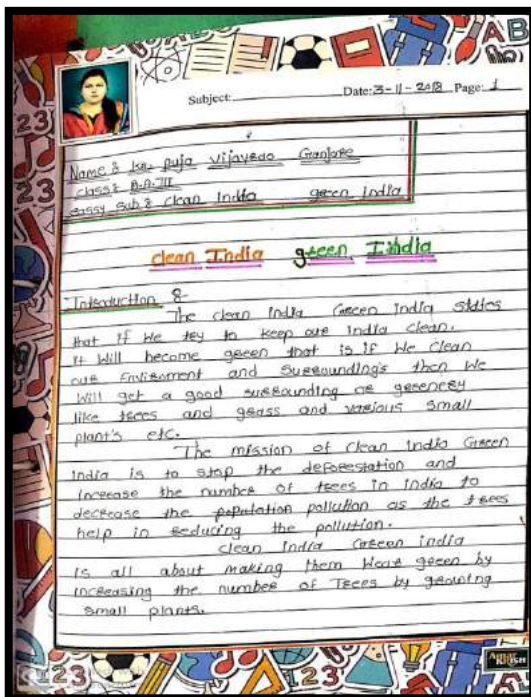 Subject: Date: 3-11-2018 Page: 1
Name : Ku. Puja Vijayrao Ganjare
Class : B.A. III
Eassy Sub : Clean India green India
Clean India green India
Introduction :-
The clean india Green india states
that if we try to keep our India clean.
it will become green that is if we clean
our Enviroment and Surrounding's then we
will get a good surrounding or greenery
like trees and grass and various small
plant's etc.
The mission of Clean India Green
india is to stop the deforestation and
increase the number of trees in india to
decrease the population pollution as the trees
help in reducing the pollution.
Clean india Green india
is all about making them Wear green by
increasing the number of Trees by growing
small plants.